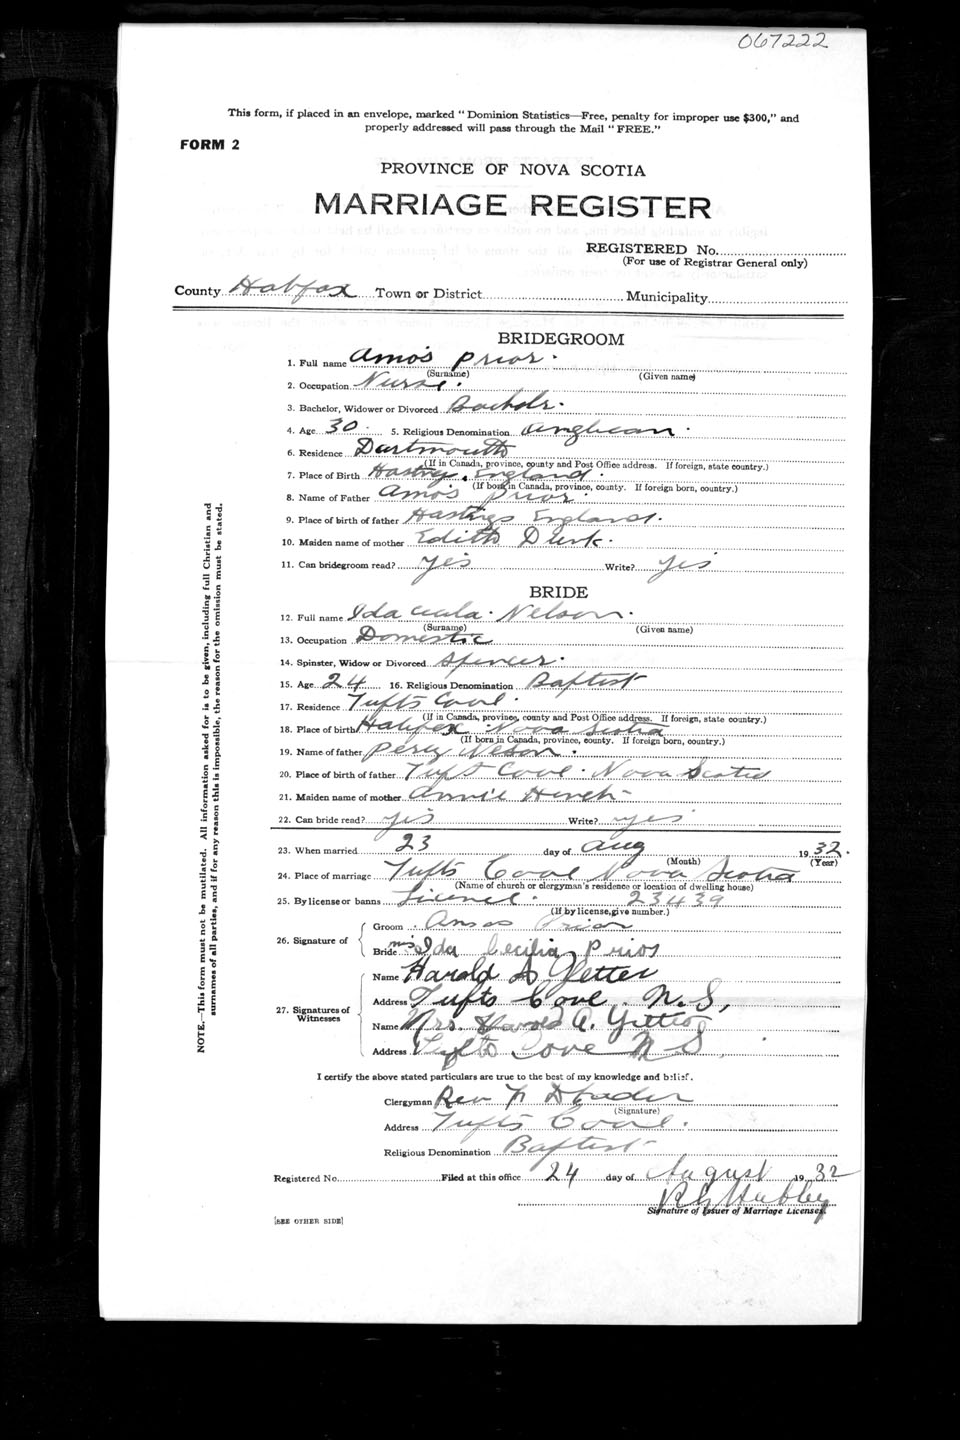 067222
This form, if placed in an envelope, marked "Dominion Statistics—Free, penalty for improper use $300," and
properly addressed will pass through the Mail "FREE."
FORM 2
PROVINCE OF NOVA SCOTIA
MARRIAGE REGISTER
REGISTERED No.
(For use of Registrar General only)
County Halifax Town or District Municipality
BRIDEGROOM
1. Full name Amos Prior.
(Surname) (Given name)
2. Occupation Nurse.
3. Bachelor, Widower or Divorced Bachelr.
4. Age 30. 5. Religious Denomination Anglican.
6. Residence Dartmouth
(If in Canada, province, county and Post Office address. If foreign, state country.)
7. Place of Birth England.
(If born in Canada, province, county. If foreign born, country.)
8. Name of Father Amos Prior.
9. Place of birth of father Hastings England.
10. Maiden name of mother Edith
11. Can bridegroom read? Yes Write? Yes
BRIDE
12. Full name Ida Nelson.
(Surname) (Given name)
13. Occupation Domestic
14. Spinster, Widow or Divorced
15. Age 24 16. Religious Denomination Baptist
17. Residence Tufts Cove.
(If in Canada, province, county and Post Office address. If foreign, state country.)
18. Place of birth Halifax Nova Scotia
(If born in Canada, province, county. If foreign born, country.)
19. Name of father Percy Nelson.
20. Place of birth of father Tuft Cove. Nova Scotia
21. Maiden name of mother Annie
22. Can bride read? yes Write? yes
23. When married 23 day of Aug 1932.
(Month) (Year)
24. Place of marriage Tufts Cove Nova Scotia
(Name of church or clergyman's residence or location of dwelling house)
25. By license or banns 23439
(If by license, give number.)
26. Signature of
Groom Amos Prior
Bride Mrs Ida Cecilia Prior
27. Signatures of Witnesses
Name Harold A
Address Tufts Cove. N.S,
Name Mrs. Harold A.
Address Tufts Cove N S
I certify the above stated particulars are true to the best of my knowledge and belief.
Clergyman Rev
(Signature)
Address Tufts Cove.
Religious Denomination Baptist
Registered No. Filed at this office 24 day of August 1932
R G Hubley
Signature of Issuer of Marriage Licenses.
[SEE OTHER SIDE]
NOTE.—This form must not be mutilated. All information asked for is to be given, including full Christian and
surnames of all parties, and if for any reason this is impossible, the reason for the omission must be stated.